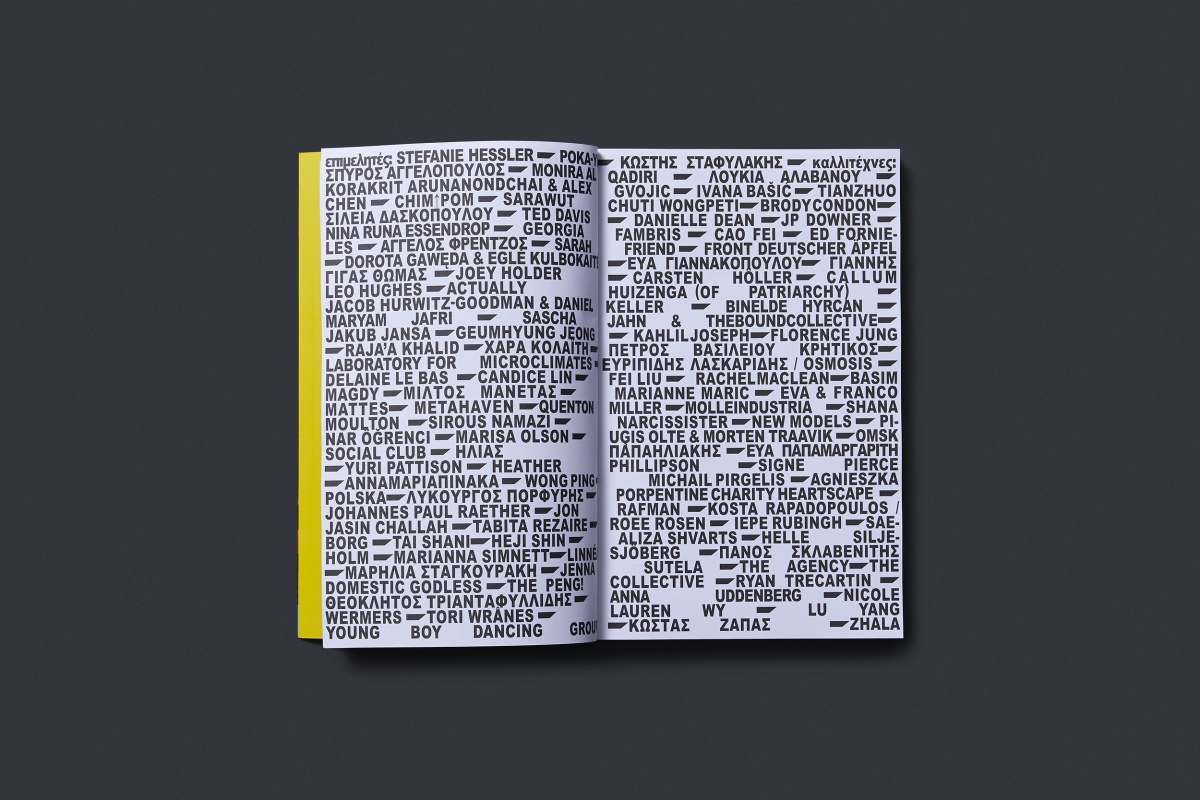 επιμελητές: STEFANIE HESSLER POKA-Y ΚΩΣΤΗΣ ΣΤΑΦΥΛΑΚΗΣ καλλιτέχνες:
ΣΠΥΡΟΣ ΑΓΓΕΛΟΠΟΥΛΟΣ MONIRA AL QADIRI ΛΟΥΚΙΑ ΑΛΑΒΑΝΟΥ
KORAKRIT ARUNANONDCHAI & ALEX GVOJIC IVANA BAŠIĆ TIANZHUO
CHEN CHIM↑POM SARAWUT CHUTI WONGPETI BRODY CONDON
ΣΙΛΕΙΑ ΔΑΣΚΟΠΟΥΛΟΥ TED DAVIS DANIELLE DEAN JP DOWNER
NINA RUNA ESSENDROP GEORGIA FAMBRIS CAO FEI ED FORNIE-
LES ΑΓΓΕΛΟΣ ΦΡΕΝΤΖΟΣ SARAH FRIEND FRONT DEUTSCHER ÄPFEL
DOROTA GAWĘDA & EGLĖ KULBOKAITĖ ΕΥΑ ΓΙΑΝΝΑΚΟΠΟΥΛΟΥ ΓΙΑΝΝΗΣ
ΓΙΓΑΣ ΘΩΜΑΣ JOEY HOLDER CARSTEN HÖLLER CALLUM
LEO HUGHES ACTUALLY HUIZENGA (OF PATRIARCHY)
JACOB HURWITZ-GOODMAN & DANIEL KELLER BINELDE HYRCAN
MARYAM JAFRI SASCHA JAHN & THEBOUNDCOLLECTIVE
JAKUB JANSA GEUMHYUNG JEONG KAHLILJOSEPH FLORENCE JUNG
RAJA'A KHALID ΧΑΡΑ ΚΟΛΑΪΤΗ ΠΕΤΡΟΣ ΒΑΣΙΛΕΙΟΥ ΚΡΗΤΙΚΟΣ
LABORATORY FOR MICROCLIMATES ΕΥΡΙΠΙΔΗΣ ΛΑΣΚΑΡΙΔΗΣ / OSMOSIS
DELAINE LE BAS CANDICE LIN FEI LIU RACHELMACLEAN BASIM
MAGDY ΜΙΛΤΟΣ ΜΑΝΕΤΑΣ MARIANNE MARIC EVA & FRANCO
MATTES METAHAVEN QUENTON MILLER MOLLEINDUSTRIA SHANA
MOULTON SIROUS NAMAZI NARCISSISTER NEW MODELS PI-
NAR ÖĞRENCI MARISA OLSON UGIS OLTE & MORTEN TRAAVIK OMSK
SOCIAL CLUB ΗΛΙΑΣ ΠΑΠΑΗΛΙΑΚΗΣ ΕΥΑ ΠΑΠΑΜΑΡΓΑΡΙΤΗ
YURI PATTISON HEATHER PHILLIPSON SIGNE PIERCE
ΑΝΝΑΜΑΡΙΑΠΙΝΑΚΑ WONG PING MICHAIL PIRGELIS AGNIESZKA
POLSKA ΛΥΚΟΥΡΓΟΣ ΠΟΡΦΥΡΗΣ PORPENTINE CHARITY HEARTSCAPE
JOHANNES PAUL RAETHER JON RAFMAN KOSTA RAPADOPOULOS /
JASIN CHALLAH TABITA REZAIRE ROEE ROSEN IEPE RUBINGH SAE-
BORG TAI SHANI HEJI SHIN ALIZA SHVARTS HELLE SILJE-
HOLM MARIANNA SIMNETT LINNÉA SJÖBERG ΠΑΝΟΣ ΣΚΛΑΒΕΝΙΤΗΣ
ΜΑΡΗΛΙΑ ΣΤΑΓΚΟΥΡΑΚΗ JENNA SUTELA THE AGENCY THE
DOMESTIC GODLESS THE PENG! COLLECTIVE RYAN TRECARTIN
ΘΕΟΚΛΗΤΟΣ ΤΡΙΑΝΤΑΦΥΛΛΙΔΗΣ ANNA UDDENBERG NICOLE
WERMERS TORI WRÅNES LAUREN WY LU YANG
YOUNG BOY DANCING GROUP ΚΩΣΤΑΣ ΖΑΠΑΣ ZHALA